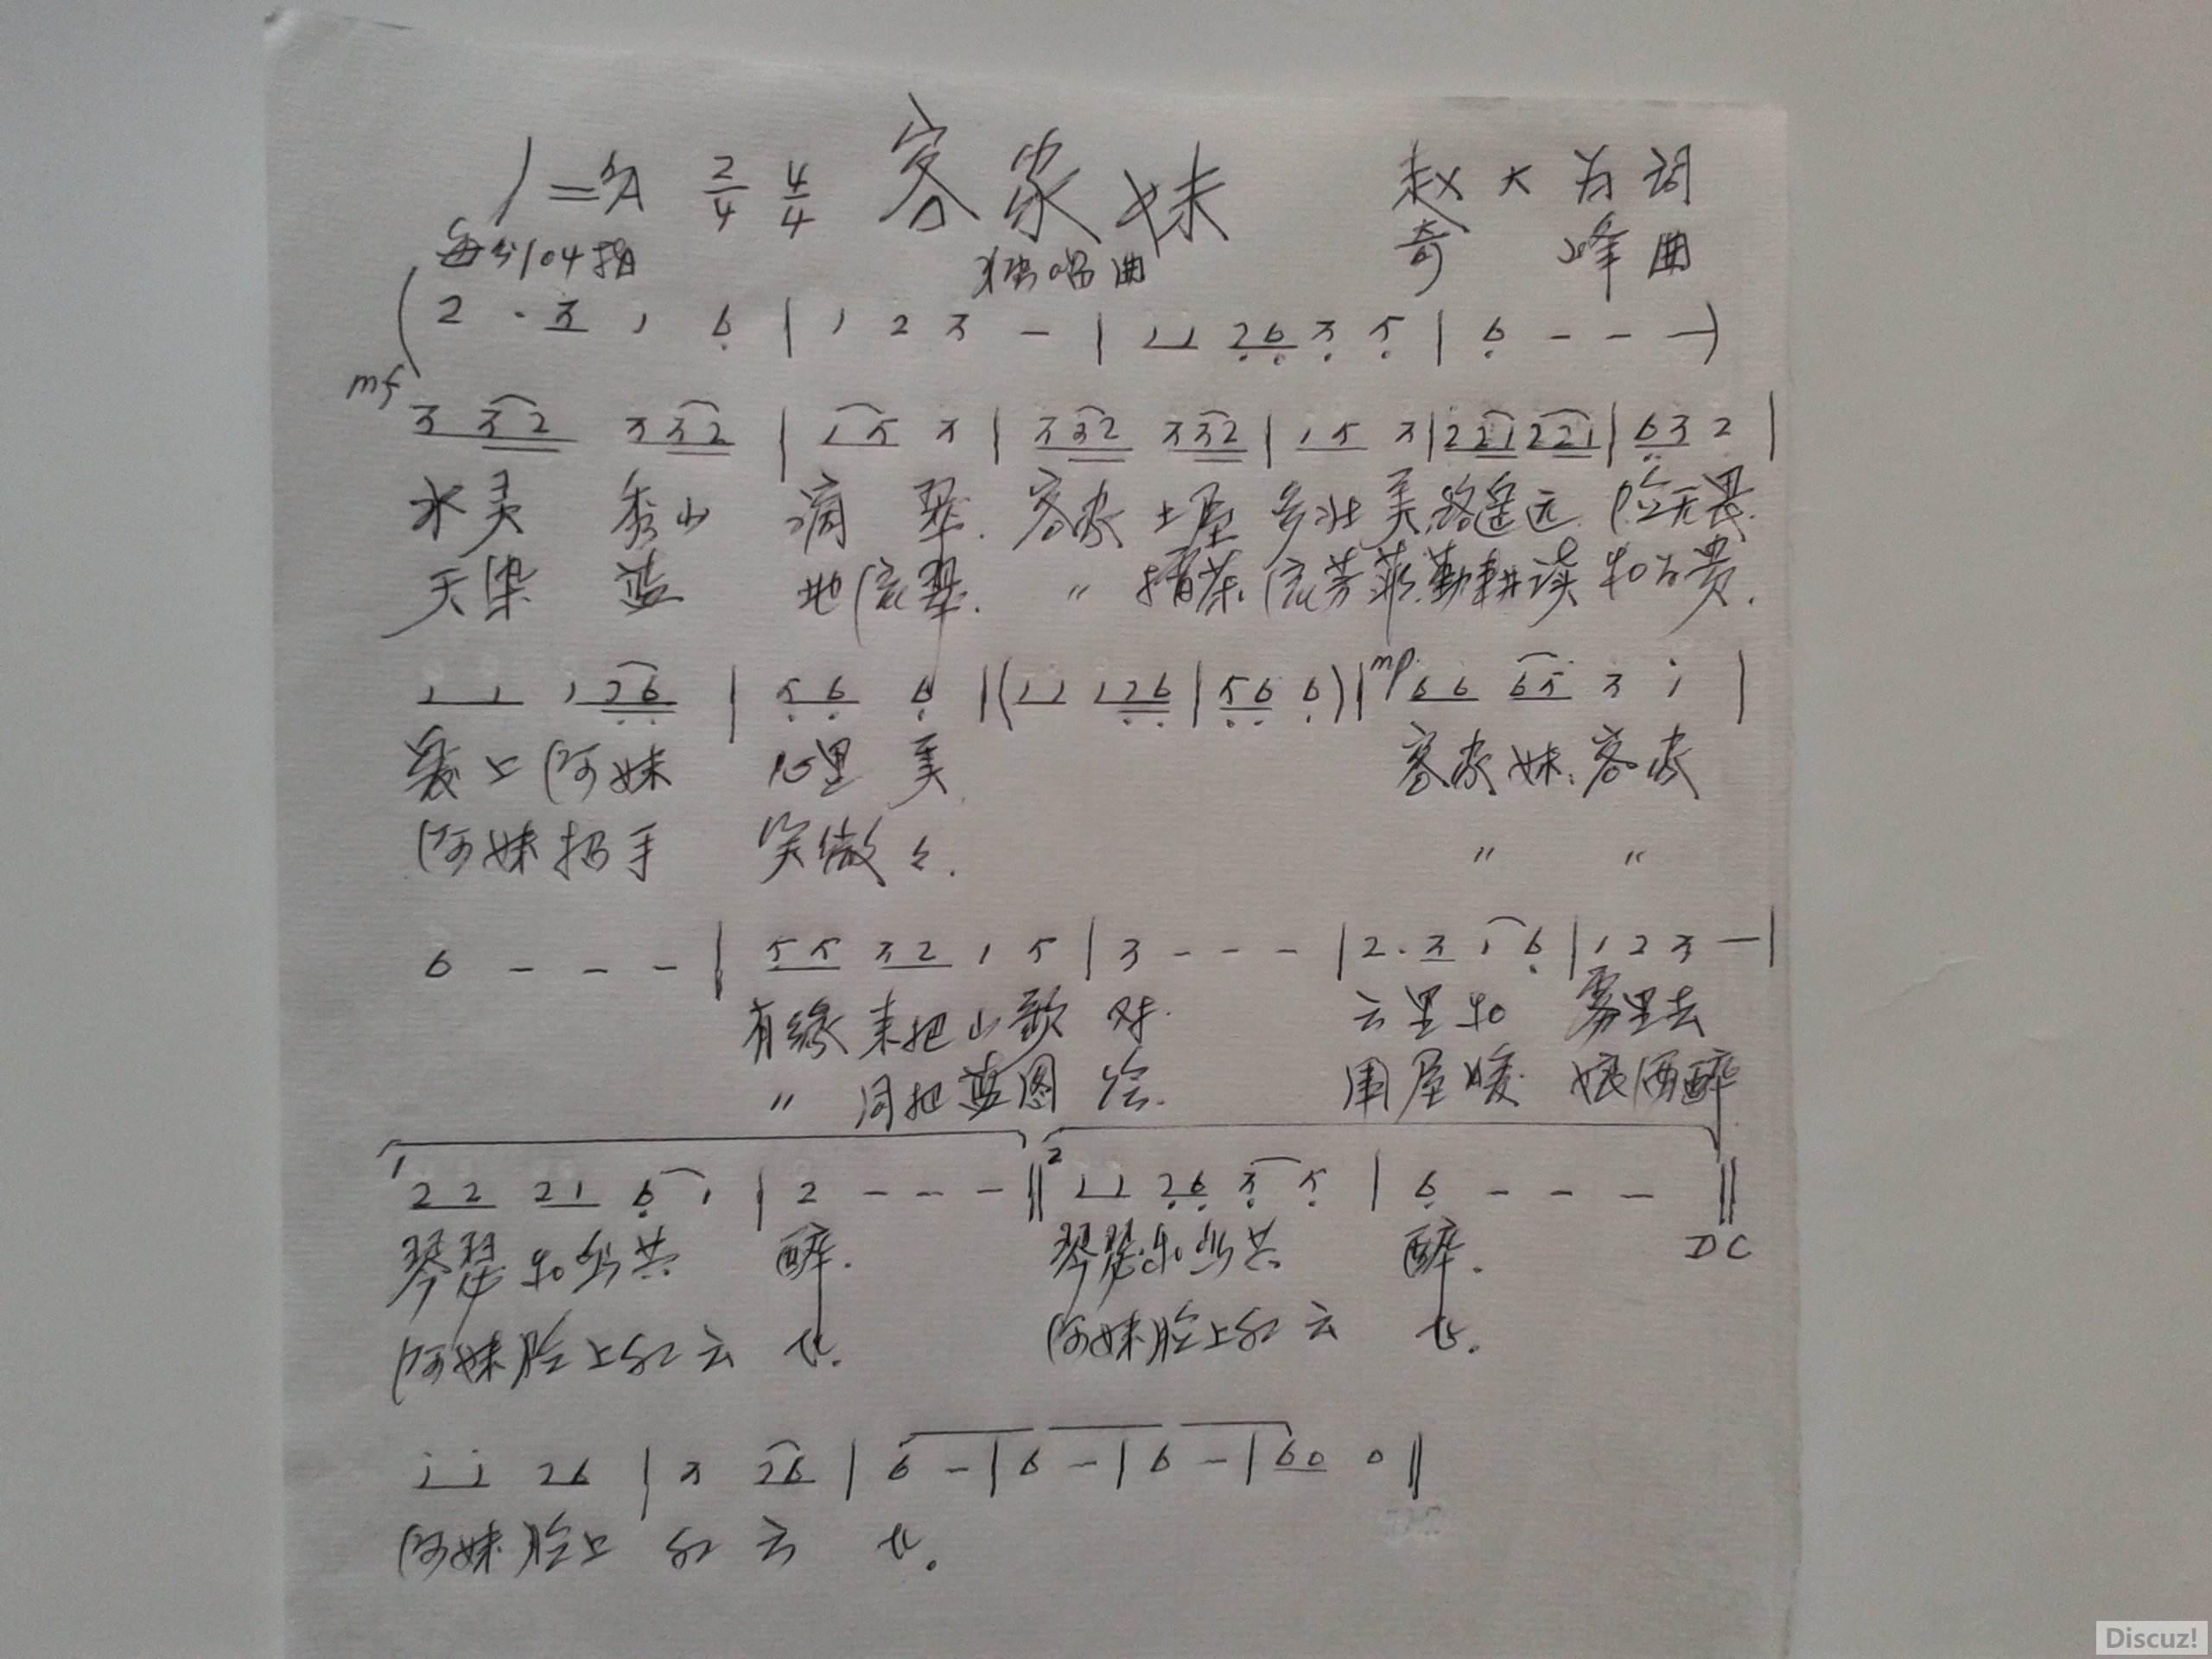 1=♭A 2/4 4/4 客家妹 赵大为词
每分104拍 独唱曲 奇峰曲
(2 · 3 1 6 | 1 2 3 - | 1 1 2 6 3 5 | 6 - - -)
mf 3 3 2 3 3 2 | 1 5 3 | 3 3 2 3 3 2 | 1 5 3 | 2 2 1 2 2 1 | 6 3 2 |
水灵 秀山 滴翠. 客家土屋 多壮美.路遥远 险无畏.
天染蓝 地流翠. 〃 擂茶流芳菲.勤耕读 和为贵.
1 1 1 2 6 | 5 6 6 | (1 1 1 2 6 | 5 6 6) | mp 6 6 6 5 3 i |
爱上阿妹 心里美 客家妹.客家
阿妹招手 笑微々. 〃 〃
6 - - - | 5 5 3 2 1 5 | 3 - - - | 2 · 3 1 6 | 1 2 3 - |
有缘来把山歌对. 云里和 雾里去
〃 同把蓝图绘. 围屋暖 娘酒醉
1 2 2 2 1 6 1 | 2 - - - ‖ 2 1 1 2 6 3 5 | 6 - - - ‖
琴瑟和鸣共醉. 琴瑟和鸣共醉. DC
阿妹脸上红云飞. 阿妹脸上红云飞.
i i 2 6 | 3 2 6 | 6 - | 6 - | 6 - | 6 0 0 ‖
阿妹脸上红云飞.
Discuz!